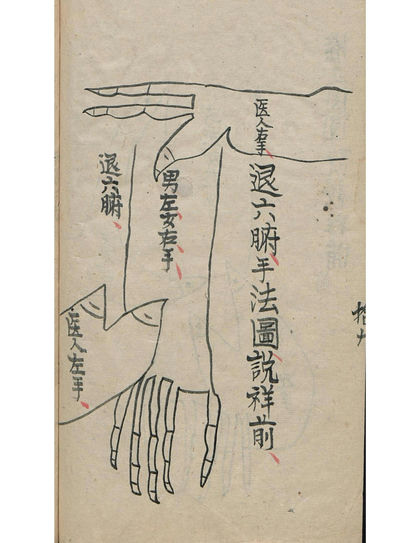 医人右手
退六腑手法圖説祥前
男左女右手
退六腑
医人左手